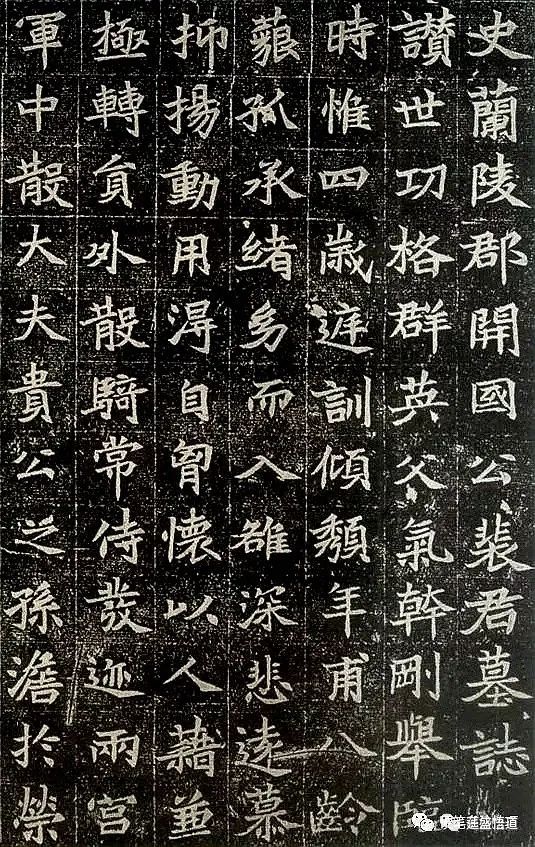 史蘭陵郡開國公裴君墓誌
讃世功格群英父氣幹剛舉
時惟四歲庭訓傾頹年甫八齡
藐孤承緒幼而入雒深悲遠慕
抑揚動用得自胷懷以人藉並
極轉員外散騎常侍發迹兩宮
軍中散大夫貴公之孫澹於榮